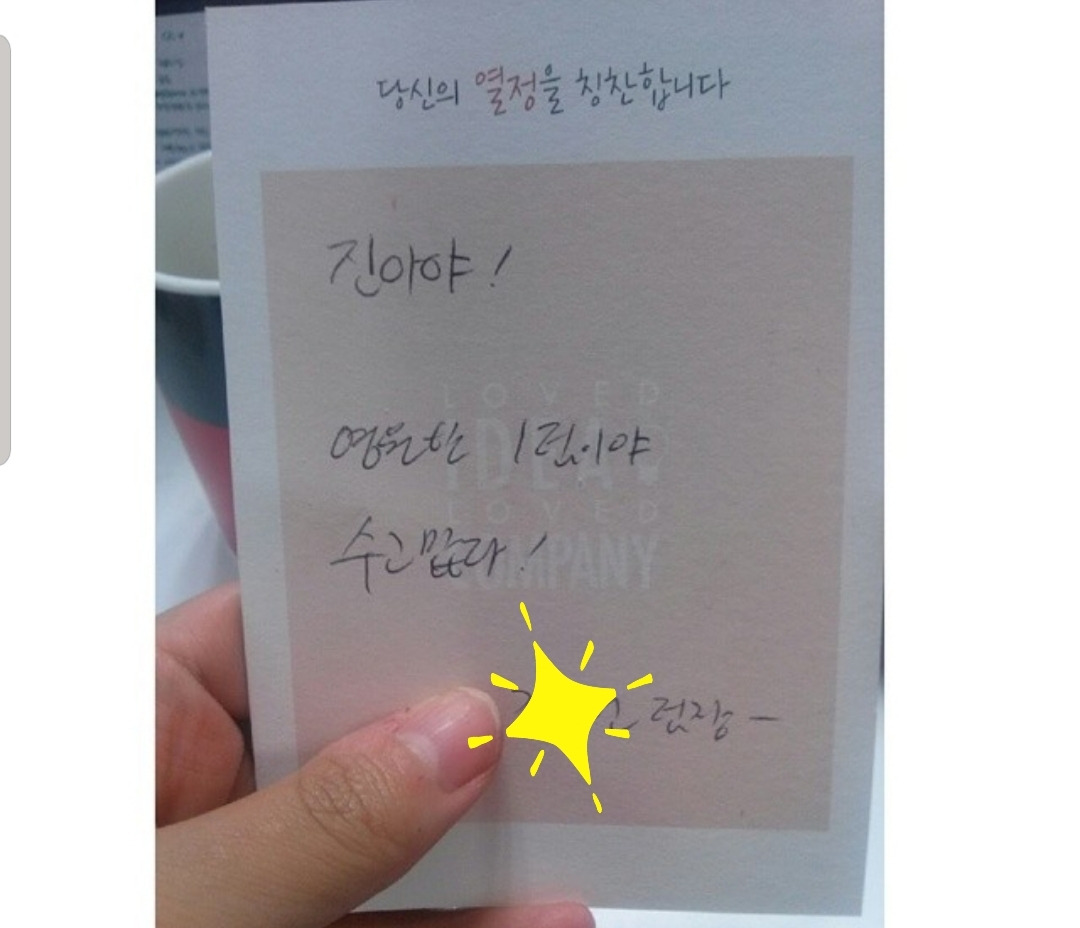 당신의 열정을 칭찬합니다
진아야!
LOVED
영원한 1팀이야
IDEA
LOVED
수고 많다!
COMPANY
팀장 -